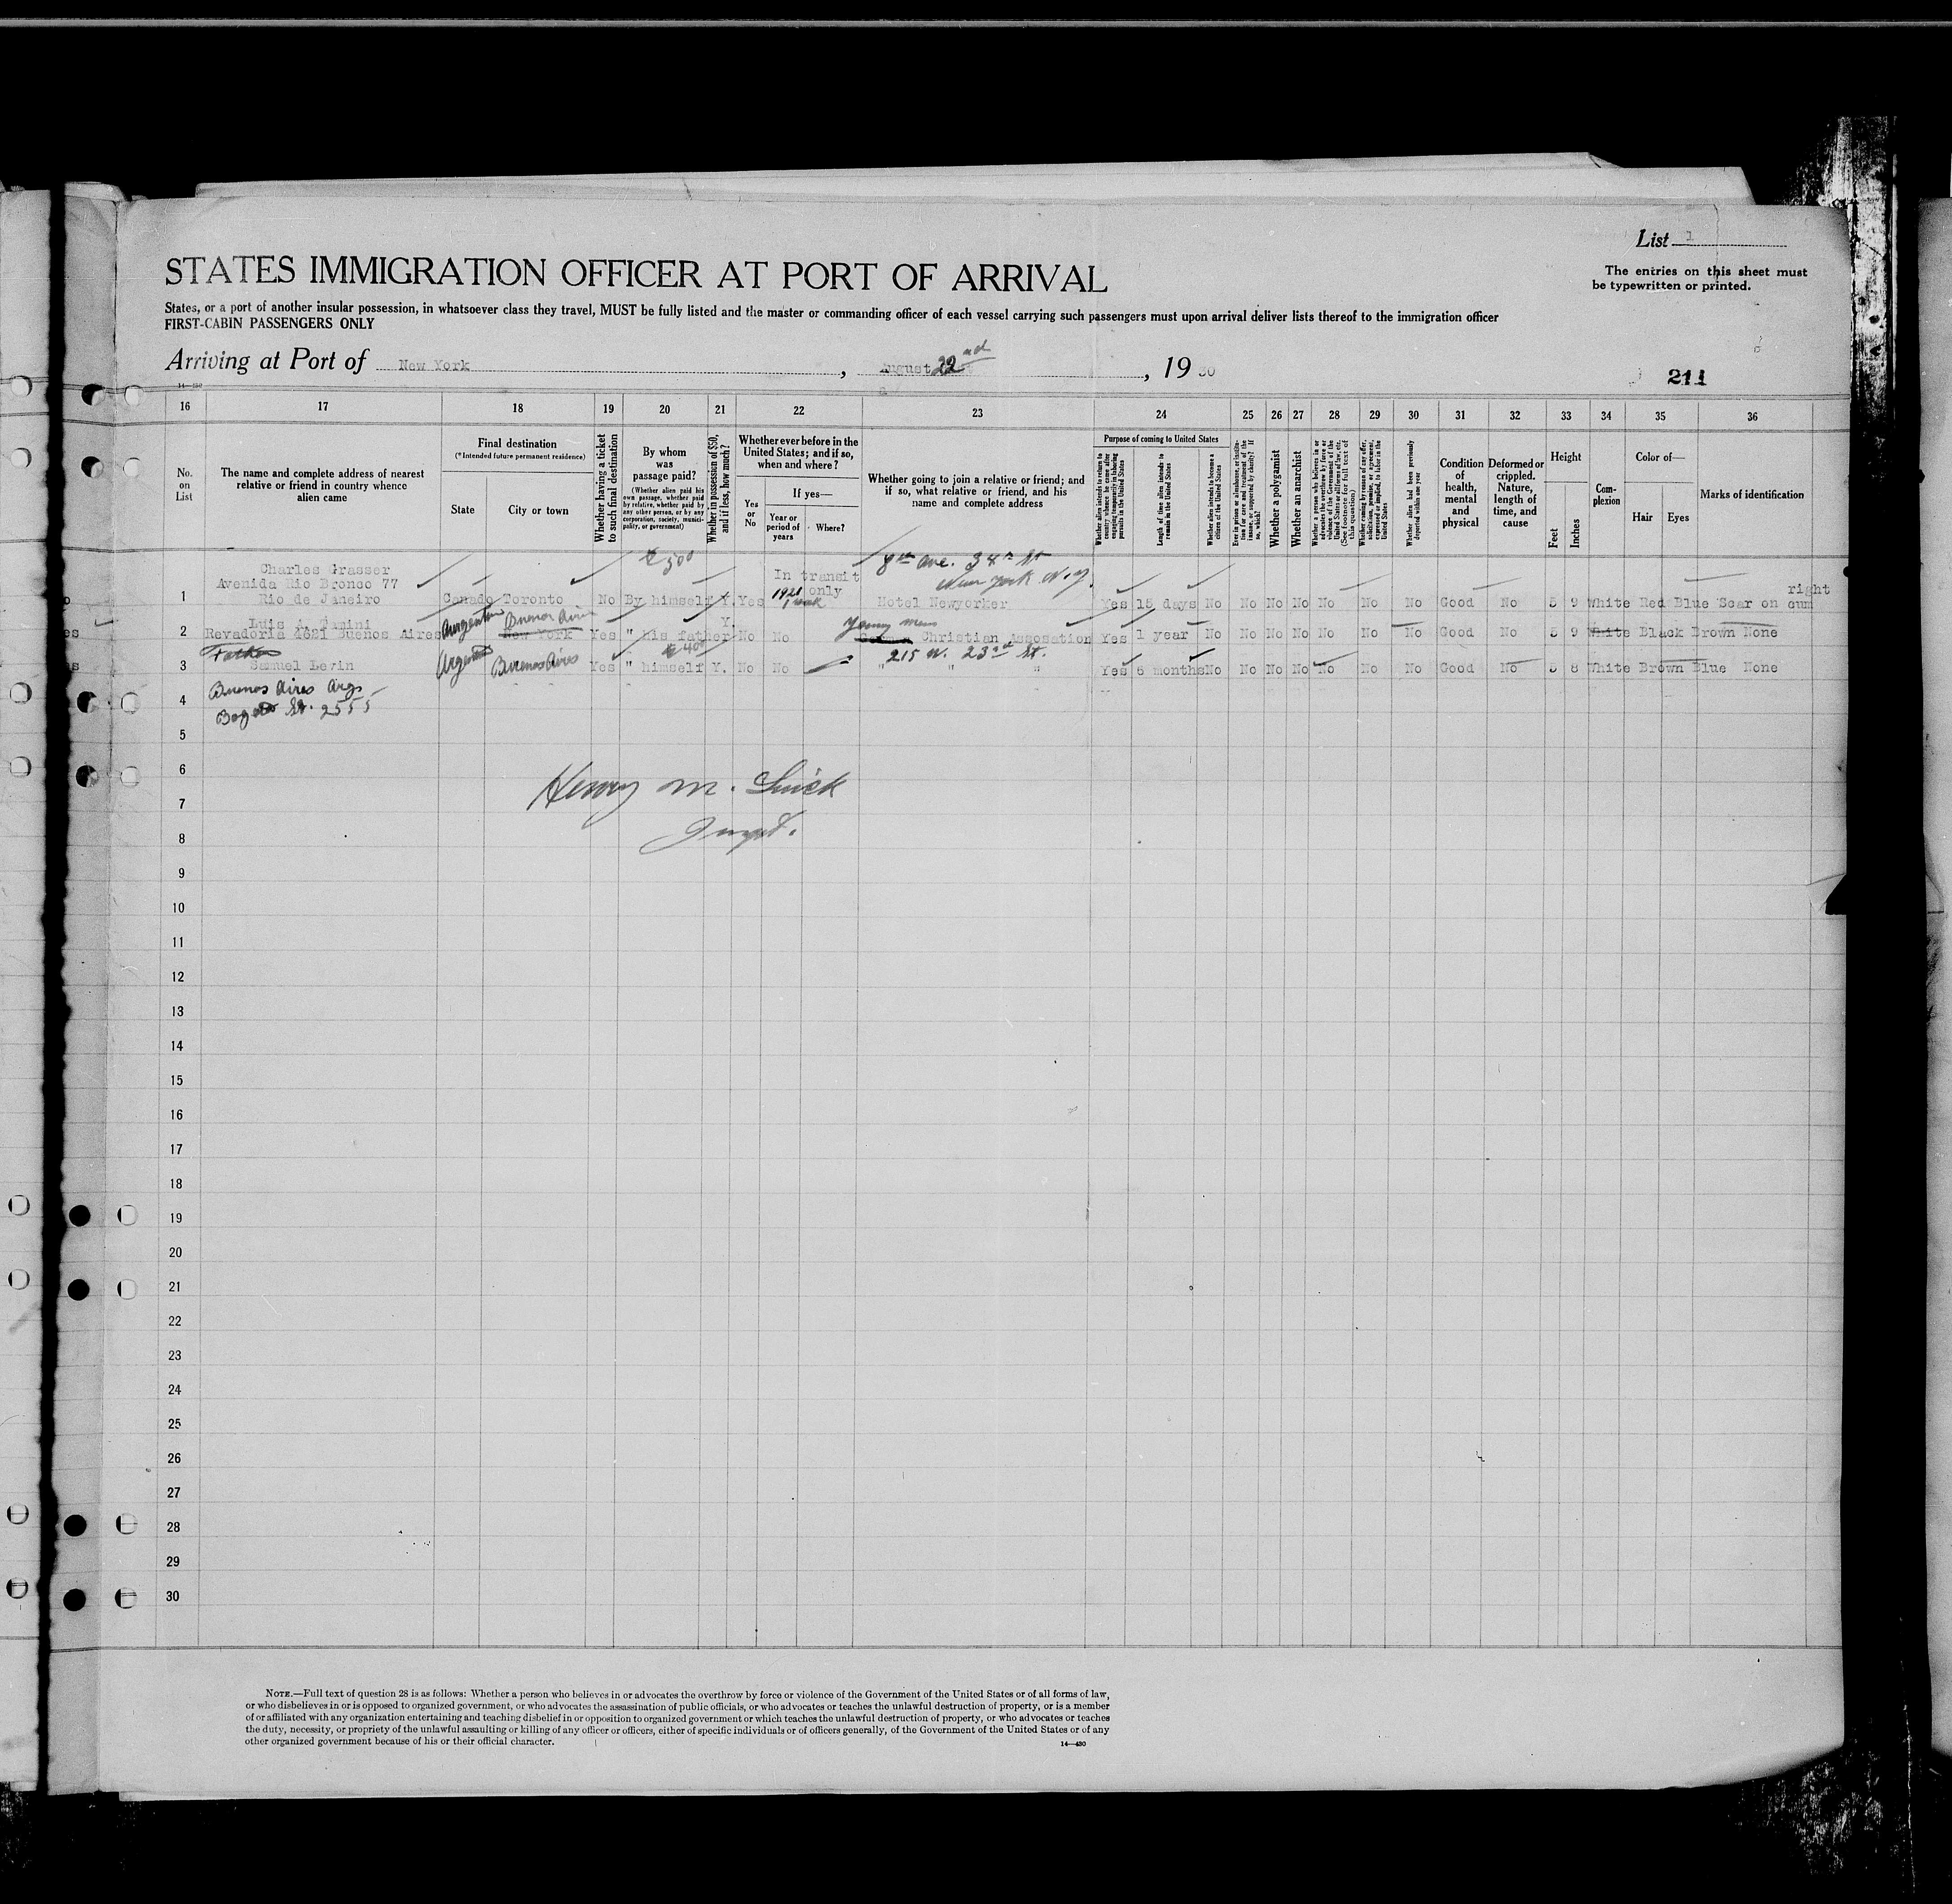 List 1
STATES IMMIGRATION OFFICER AT PORT OF ARRIVAL
The entries on this sheet must
be typewritten or printed.
States, or a port of another insular possession, in whatsoever class they travel, MUST be fully listed and the master or commanding officer of each vessel carrying such passengers must upon arrival deliver lists thereof to the immigration officer
FIRST-CABIN PASSENGERS ONLY
Arriving at Port of New York, August 22nd, 1930
211
16 17 18 19 20 21 22 23 24 25 26 27 28 29 30 31 32 33 34 35 36
No. on List
The name and complete address of nearest
relative or friend in country whence
alien came
Final destination
(*Intended future permanent residence)
State
City or town
Whether having a ticket
to such final destination
By whom
was
passage paid?
(Whether alien paid his
own passage, whether paid
by relative, whether paid by
any other person, or by any
corporation, society, munici-
pality, or government)
Whether in possession of $50,
and if less, how much?
Whether ever before in the
United States; and if so,
when and where?
Yes
or
No
If yes—
Year or
period of
years
Where?
Whether going to join a relative or friend; and
if so, what relative or friend, and his
name and complete address
Purpose of coming to United States
Whether alien intends to return to
country whence he came after
engaging temporarily in laboring
pursuits in the United States
Length of time alien intends to
remain in the United States
Whether alien intends to become a
citizen of the United States
Ever in prison or almshouse, or institu-
tion for care and treatment of the
insane, or supported by charity? If
so, which?
Whether a polygamist
Whether an anarchist
Whether a person who believes in or
advocates the overthrow by force or
violence of the Government of the
United States or all forms of law, etc.
(See footnote for full text of
this question)
Whether coming by reason of any offer,
solicitation, promise, or agreement,
expressed or implied, to labor in the
United States
Whether alien had been previously
deported within one year
Condition
of
health,
mental
and
physical
Deformed or
crippled.
Nature,
length of
time, and
cause
Height
Feet
Inches
Com-
plexion
Color of—
Hair
Eyes
Marks of identification
$500
8th Ave. 34th St
New York N.Y.
Charles Grasser
Avenida Rio Bronco 77
In transit
only
right
1 Rio de Janeiro Canado Toronto No By himself Y. Yes 1921 1 week Hotel Newyorker Yes 15 days No No No No No No No Good No 5 9 White Red Blue Scar on
Argentine Buenos Aires
Young mens
2 Revadoria 4621 Buenos Aires New York Yes " his father Y. No No Christian Assosation Yes 1 year No No No No No No No Good No 5 9 White Black Brown None
Father
$400
215 W. 23rd St.
3 Samuel Levin Argent Buenos Aires Yes " himself Y. No No " " " Yes 6 months No No No No No No No Good No 5 8 White Brown Blue None
Buenos Aires Arg.
4
St. 2555
5
6
Henry M.
7
Inspt.
8
9
10
11
12
13
14
15
16
17
18
19
20
21
22
23
24
25
26
27
28
29
30
NOTE.—Full text of question 28 is as follows: Whether a person who believes in or advocates the overthrow by force or violence of the Government of the United States or of all forms of law,
or who disbelieves in or is opposed to organized government, or who advocates the assassination of public officials, or who advocates or teaches the unlawful destruction of property, or is a member
of or affiliated with any organization entertaining and teaching disbelief in or opposition to organized government or which teaches the unlawful destruction of property, or who advocates or teaches
the duty, necessity, or propriety of the unlawful assaulting or killing of any officer or officers, either of specific individuals or of officers generally, of the Government of the United States or of any
other organized government because of his or their official character.
14—430